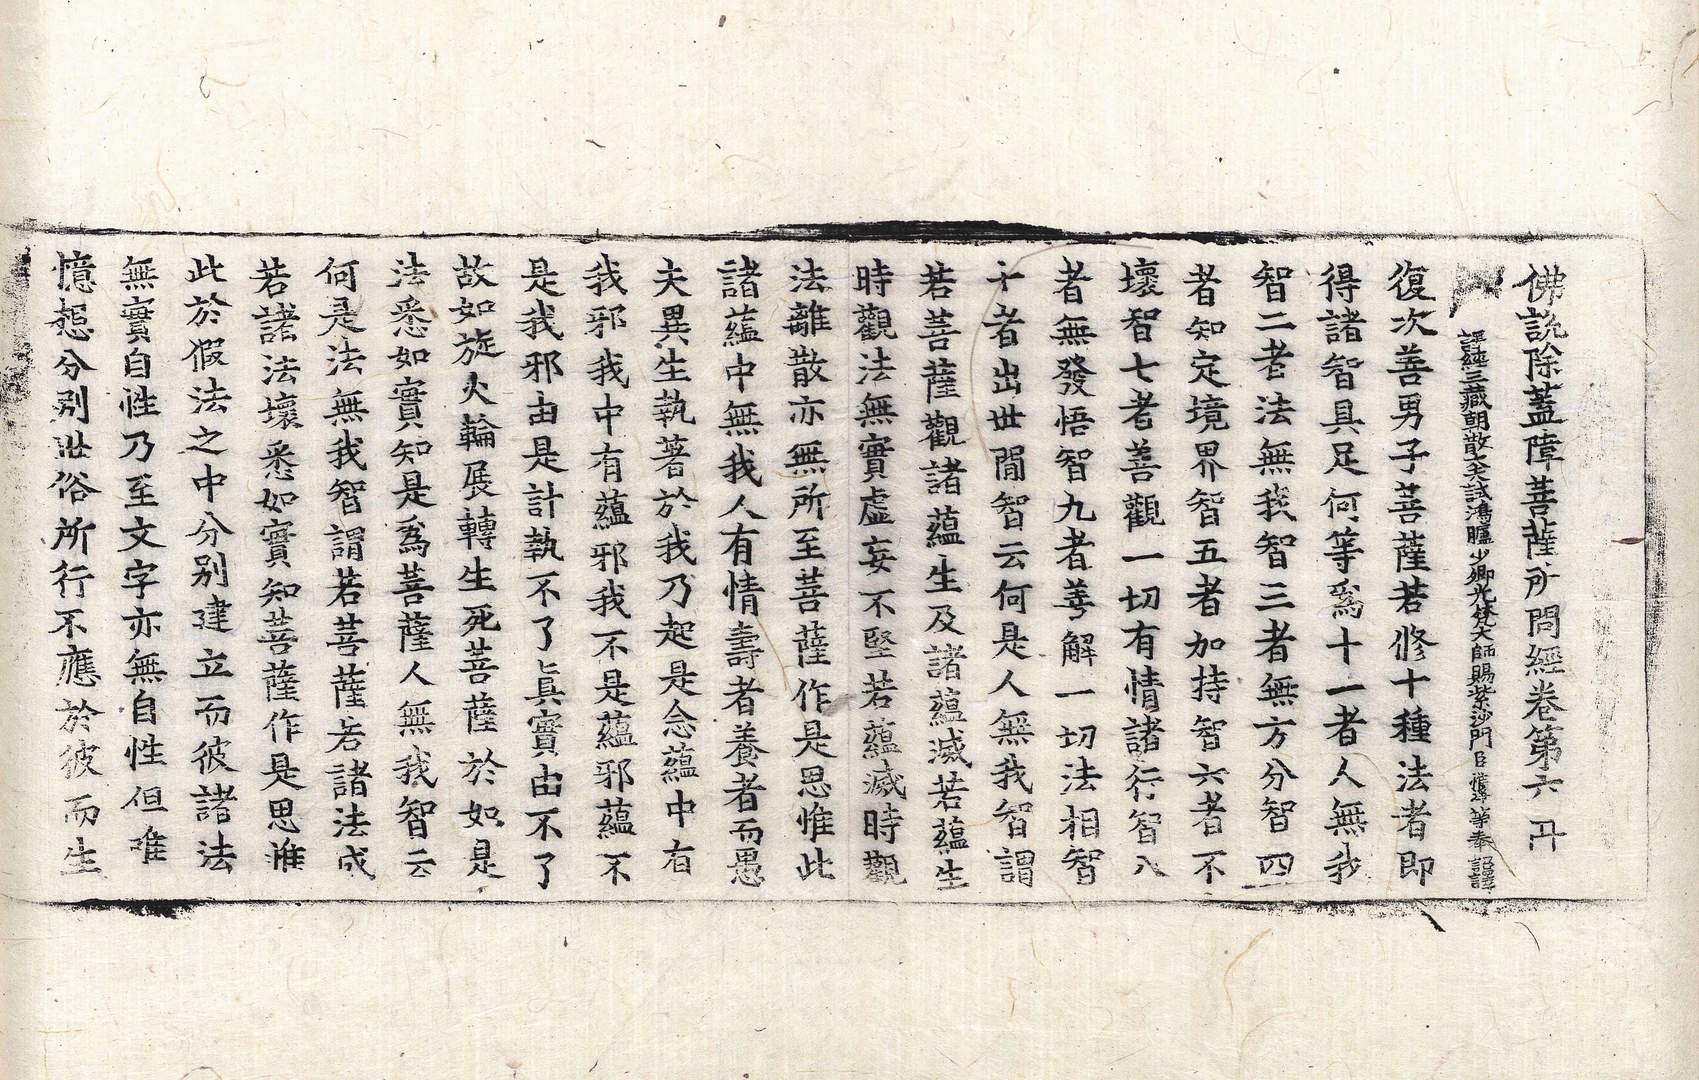 佛說除蓋障菩薩所問經卷第六 丹
譯經三藏朝散大夫試鴻臚少卿光梵大師賜紫沙門臣惟淨等奉 詔譯
復次善男子菩薩若修十種法者即
得諸智具足何等爲十一者人無我
智二者法無我智三者無方分智四
者知定境界智五者加持智六者不
壞智七者善觀一切有情諸行智八
者無發悟智九者善解一切法相智
十者出世間智云何是人無我智謂
若菩薩觀諸蘊生及諸蘊滅若蘊生
時觀法無實虛妄不堅若蘊滅時觀
法離散亦無所至菩薩作是思惟此
諸蘊中無我人有情壽者養者而愚
夫異生執著於我乃起是念蘊中有
我邪我中有蘊邪我不是蘊邪蘊不
是我邪由是計執不了眞實由不了
故如旋火輪展轉生死菩薩於如是
法悉如實知是爲菩薩人無我智云
何是法無我智謂若菩薩若諸法成
若諸法壞悉如實知菩薩作是思惟
此於假法之中分別建立而彼諸法
無實自性乃至文字亦無自性但唯
憶想分別世俗所行不應於彼而生